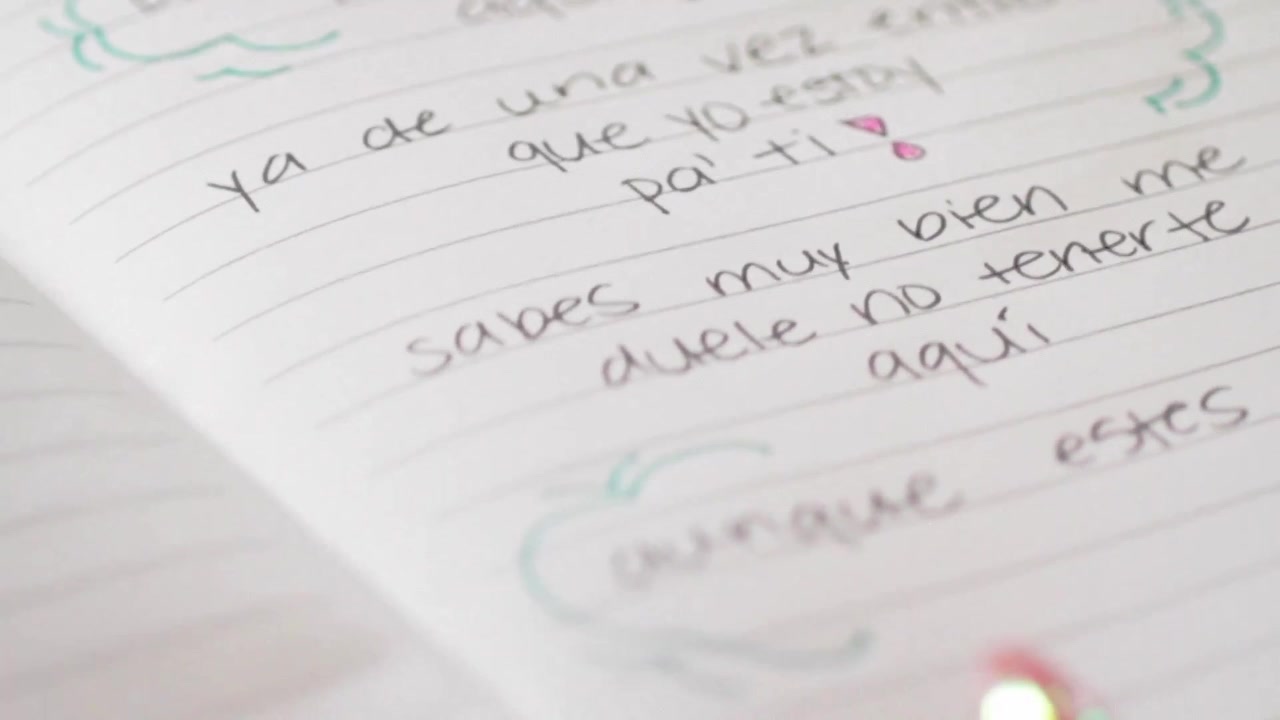 ya de una vez
que yo estoy
pa' ti
sabes muy bien me
duele no tenerte
aquí
aunque estes